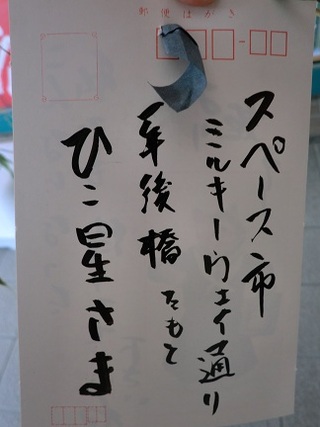 郵便はがき
スペース市
ミルキーウェイ通り
一年後橋たもと
ひこ星さま